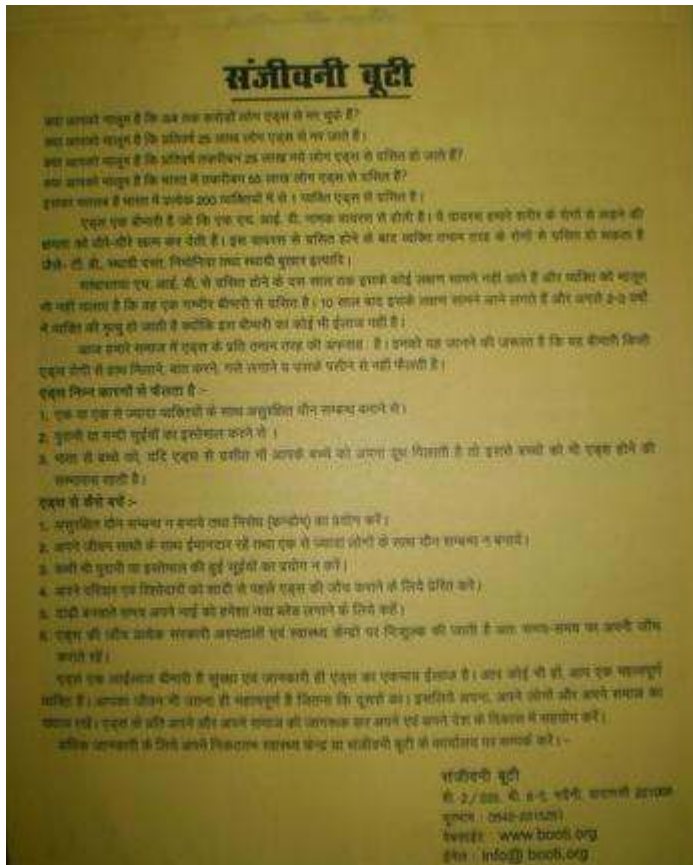 संजीवनी बूटी
क्या आपको मालूम है कि अब तक करोड़ों लोग एड्स से मर चुके हैं?
क्या आपको मालूम है कि प्रतिवर्ष 25 लाख लोग एड्स से मर जाते हैं।
क्या आपको मालूम है कि प्रतिवर्ष तकरीबन 25 लाख नये लोग एड्स से ग्रसित हो जाते हैं?
क्या आपको मालूम है कि भारत में तकरीबन 55 लाख लोग एड्स से ग्रसित हैं?
इसका मतलब है भारत में प्रत्येक 200 व्यक्तियों में से 1 व्यक्ति एड्स से ग्रसित है।
एड्स एक बीमारी है जो कि एच. आई. वी. नामक वायरस से होती है। ये वायरस हमारे शरीर के रोगों से लड़ने की
क्षमता को धीरे-धीरे खत्म कर देती हैं। इस वायरस से ग्रसित होने के बाद व्यक्ति तमाम तरह के रोगों से ग्रसित हो सकता है
जैसे- टी. बी., स्थायी दस्त, निमोनिया तथा स्थायी बुखार इत्यादि।
एच. आई. वी. से ग्रसित होने के दस साल तक इसके कोई लक्षण सामने नहीं आते हैं और व्यक्ति को मालूम
भी नहीं चलता है कि वह एक गम्भीर बीमारी से ग्रसित है। 10 साल बाद इसके लक्षण सामने आने लगते हैं और अगले 2-3 वर्षों
में व्यक्ति की मृत्यु हो जाती है क्योंकि इस बीमारी का कोई भी ईलाज नहीं है।
आज हमारे समाज में एड्स के प्रति तमाम तरह की अफवाह है। इनको यह जानने की जरूरत है कि यह बीमारी किसी
एड्स रोगी से हाथ मिलाने, बात करने, गले लगाने व उसके पसीने से नहीं फैलती है।
एड्स निम्न कारणों से फैलता है :-
1. एक या एक से ज्यादा व्यक्तियों के साथ असुरक्षित यौन सम्बन्ध बनाने से।
2. पुरानी या गन्दी सूईयों का इस्तेमाल करने से ।
3. माता से बच्चे को, यदि एड्स से ग्रसीत माँ आपके बच्चे को अपना दूध पिलाती है तो इससे बच्चों को भी एड्स होने की
सम्भावना रहती है।
एड्स से कैसे बचें :-
1. असुरक्षित यौन सम्बन्ध न बनायें तथा निरोध (कन्डोम) का प्रयोग करें।
2. अपने जीवन साथी के साथ ईमानदार रहें तथा एक से ज्यादा लोगों के साथ यौन सम्बन्ध न बनायें।
3. कभी भी पुरानी या इस्तेमाल की हुई सूईयों का प्रयोग न करें।
4. अपने परिवार एवं रिश्तेदारों को शादी से पहले एड्स की जाँच कराने के लिये प्रेरित करें।
5. दाढ़ी बनवाते समय अपने नाई को हमेशा नया ब्लेड लगाने के लिये कहें।
6. एड्स की जाँच प्रत्येक सरकारी अस्पतालों एवं स्वास्थ्य केन्द्रों पर निःशुल्क की जाती है अतः समय-समय पर अपनी जाँच
कराते रहें।
एड्स एक लाईलाज बीमारी है सुरक्षा एवं जानकारी ही एड्स का एकमात्र ईलाज है। आप कोई भी हो, आप एक महत्वपूर्ण
व्यक्ति हैं। आपका जीवन भी उतना ही महत्वपूर्ण है जितना कि दूसरों का। इसलिये अपना, अपने लोगों और अपने समाज का
ख्याल रखें। एड्स के प्रति अपने और अपने समाज को जागरूक कर अपने एवं अपने देश के विकास में सहयोग करें।
अधिक जानकारी के लिये अपने निकटतम स्वास्थ्य केन्द्र या संजीवनी बूटी के कार्यालय पर सम्पर्क करें।-
संजीवनी बूटी
बी. 2/ बी. भदैनी, वाराणसी
दूरभाष : 0542-
वेबसाईट : www.booti.org
ईमेल : info@booti.org